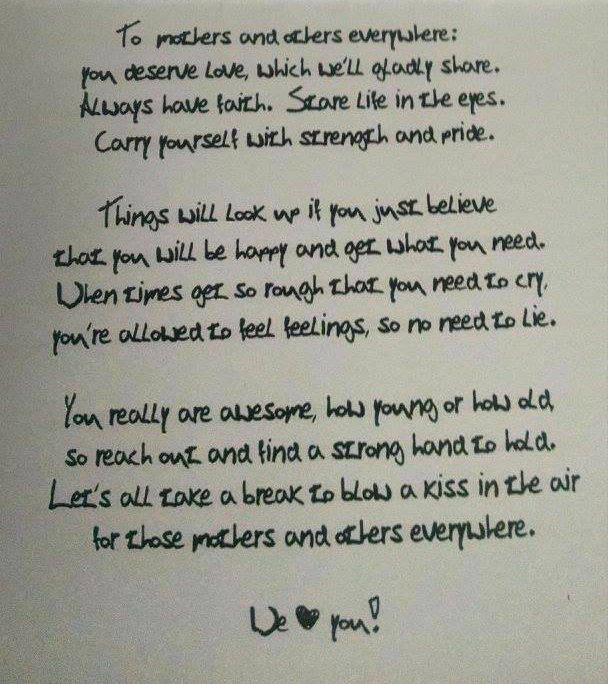 To mothers and others everywhere:
you deserve love, which we'll gladly share.
Always have faith. Stare life in the eyes.
Carry yourself with strength and pride.
Things will look up if you just believe
that you will be happy and get what you need.
When times get so rough that you need to cry,
you're allowed to feel feelings, so no need to lie.
You really are awesome, how young or how old,
so reach out and find a strong hand to hold.
Let's all take a break to blow a kiss in the air
for those mothers and others everywhere.
We ♥ you!